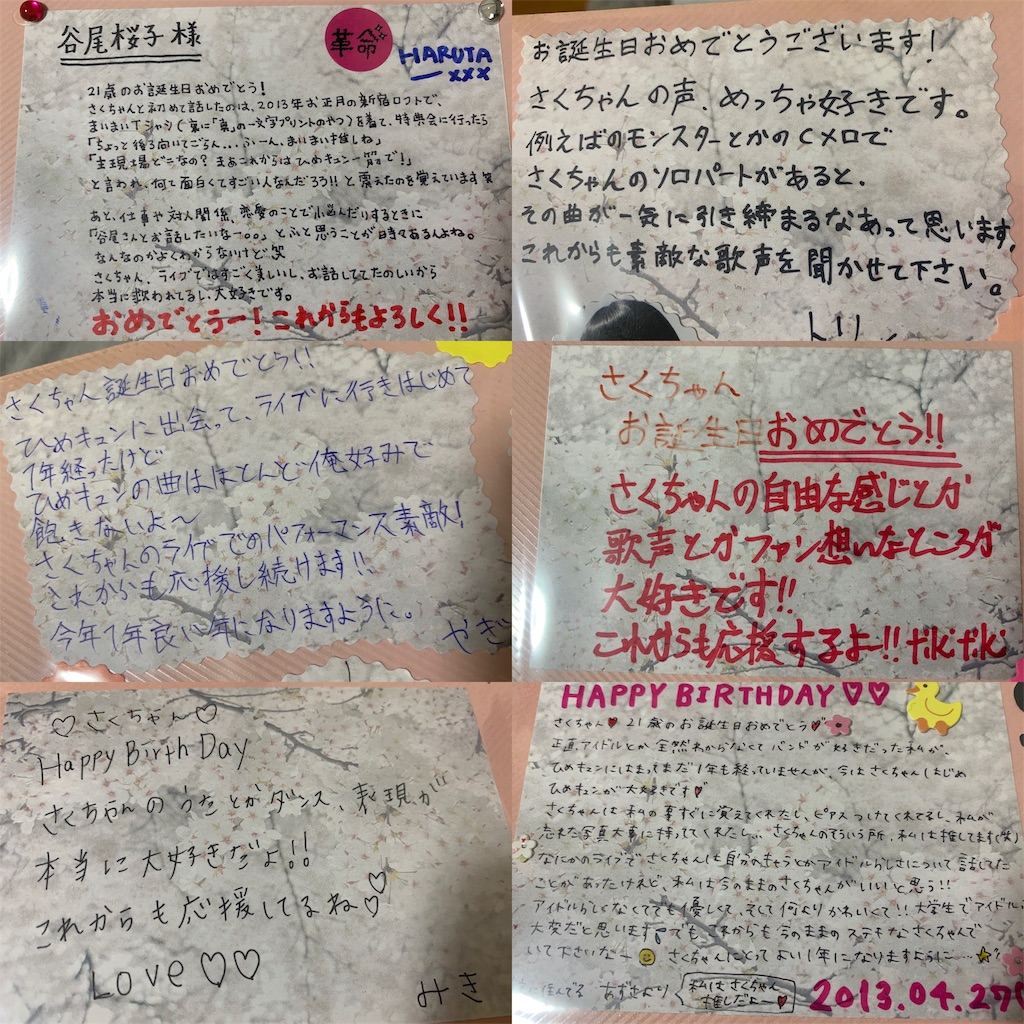 谷尾桜子様
革命
HARUTA
xxx
21歳のお誕生日おめでとう！
さくちゃんと初めて話したのは、2013年お正月の新宿ロフトで、
まいまいTシャツ( 背に「東」の一文字プリントのやつ)を着て、特典会に行ったら
「ちょっと後ろ向いてごらん...ふーん、まいまい推しね」
「主現場どこなの？まぁこれからはひめキュン一筋で！」
と言われ、何て面白くてすごい人なんだろう!!と震えたのを覚えています笑
あと、仕事や対人関係、恋愛のことで小悩んだりするときに
「谷尾さんとお話したいなー。。」とふと思うことが時々あるんよね。
なんなのかよくわからないけど笑
さくちゃん、ライブではすごく美しいし、お話しててたのしいから
本当に救われてるし、大好きです。
おめでとうー！これからもよろしく!!
お誕生日おめでとうございます！
さくちゃんの声、めっちゃ好きです。
例えばのモンスターとかのCメロで
さくちゃんのソロパートがあると、
その曲が一気に引き締まるなあって思います。
これからも素敵な歌声を聞かせて下さい。
さくちゃん誕生日おめでとう!!
ひめキュンに出会って、ライブに行きはじめて
1年経ったけど
ひめキュンの曲はほとんど俺好みで
飽きないよ〜
さくちゃんのライブでのパフォーマンス素敵！
これからも応援し続けます!!
今年1年良い年になりますように。
やぎ
さくちゃん
お誕生日おめでとう!!
さくちゃんの自由な感じとか
歌声とかファン想いなところが
大好きです!!
これからも応援するよー!!
♡さくちゃん♡
Happy Birth Day
さくちゃんのうたとかダンス、表現が
本当に大好きだよ!!
これからも応援してるね♡
Love♡♡
みき
HAPPY BIRTHDAY♡♡
さくちゃん♥21歳のお誕生日おめでとう♥
正直、アイドルとか全然わからなくてバンドが好きだった私が、
ひめキュンにはまってまだ1年も経っていませんが、今はさくちゃんはじめ
ひめキュンが大好きです♥
さくちゃんは私の事すぐに覚えてくれたし、ピアスつけてくれてるし、私が
忘れた写真大事に持っててくれたし... さくちゃんのそういう所、私は推してます(笑)
なにかのライブでさくちゃんは自分のキャラとかアイドルらしさについて話してた
ことがあったけれど、私は今のままのさくちゃんがいいと思う!!
アイドルらしくなくてても優しくて、そして何よりかわいくて!! 大学生でアイドル
大変だと思います でもこれからも今のままのステキなさくちゃんで
いて下さいなー さくちゃんにとってよい1年になりますように…
住んでる あずさより
私はさくちゃん
推しだよー♥
2013.04.27